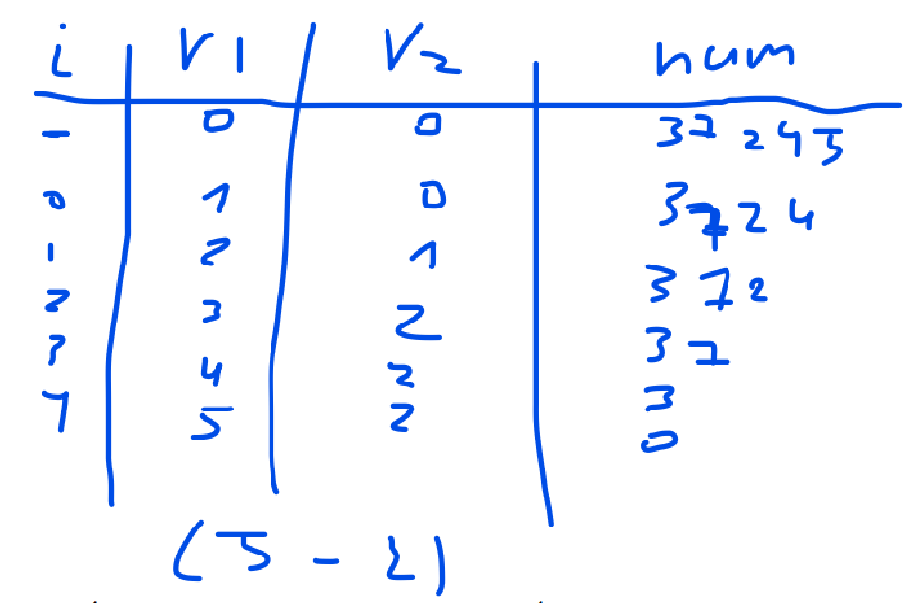 i V1 V2 num
- 0 0 37245
0 1 0 3724
1 2 1 372
2 3 2 37
3 4 2 3
4 5 2 0
(5 - 2)